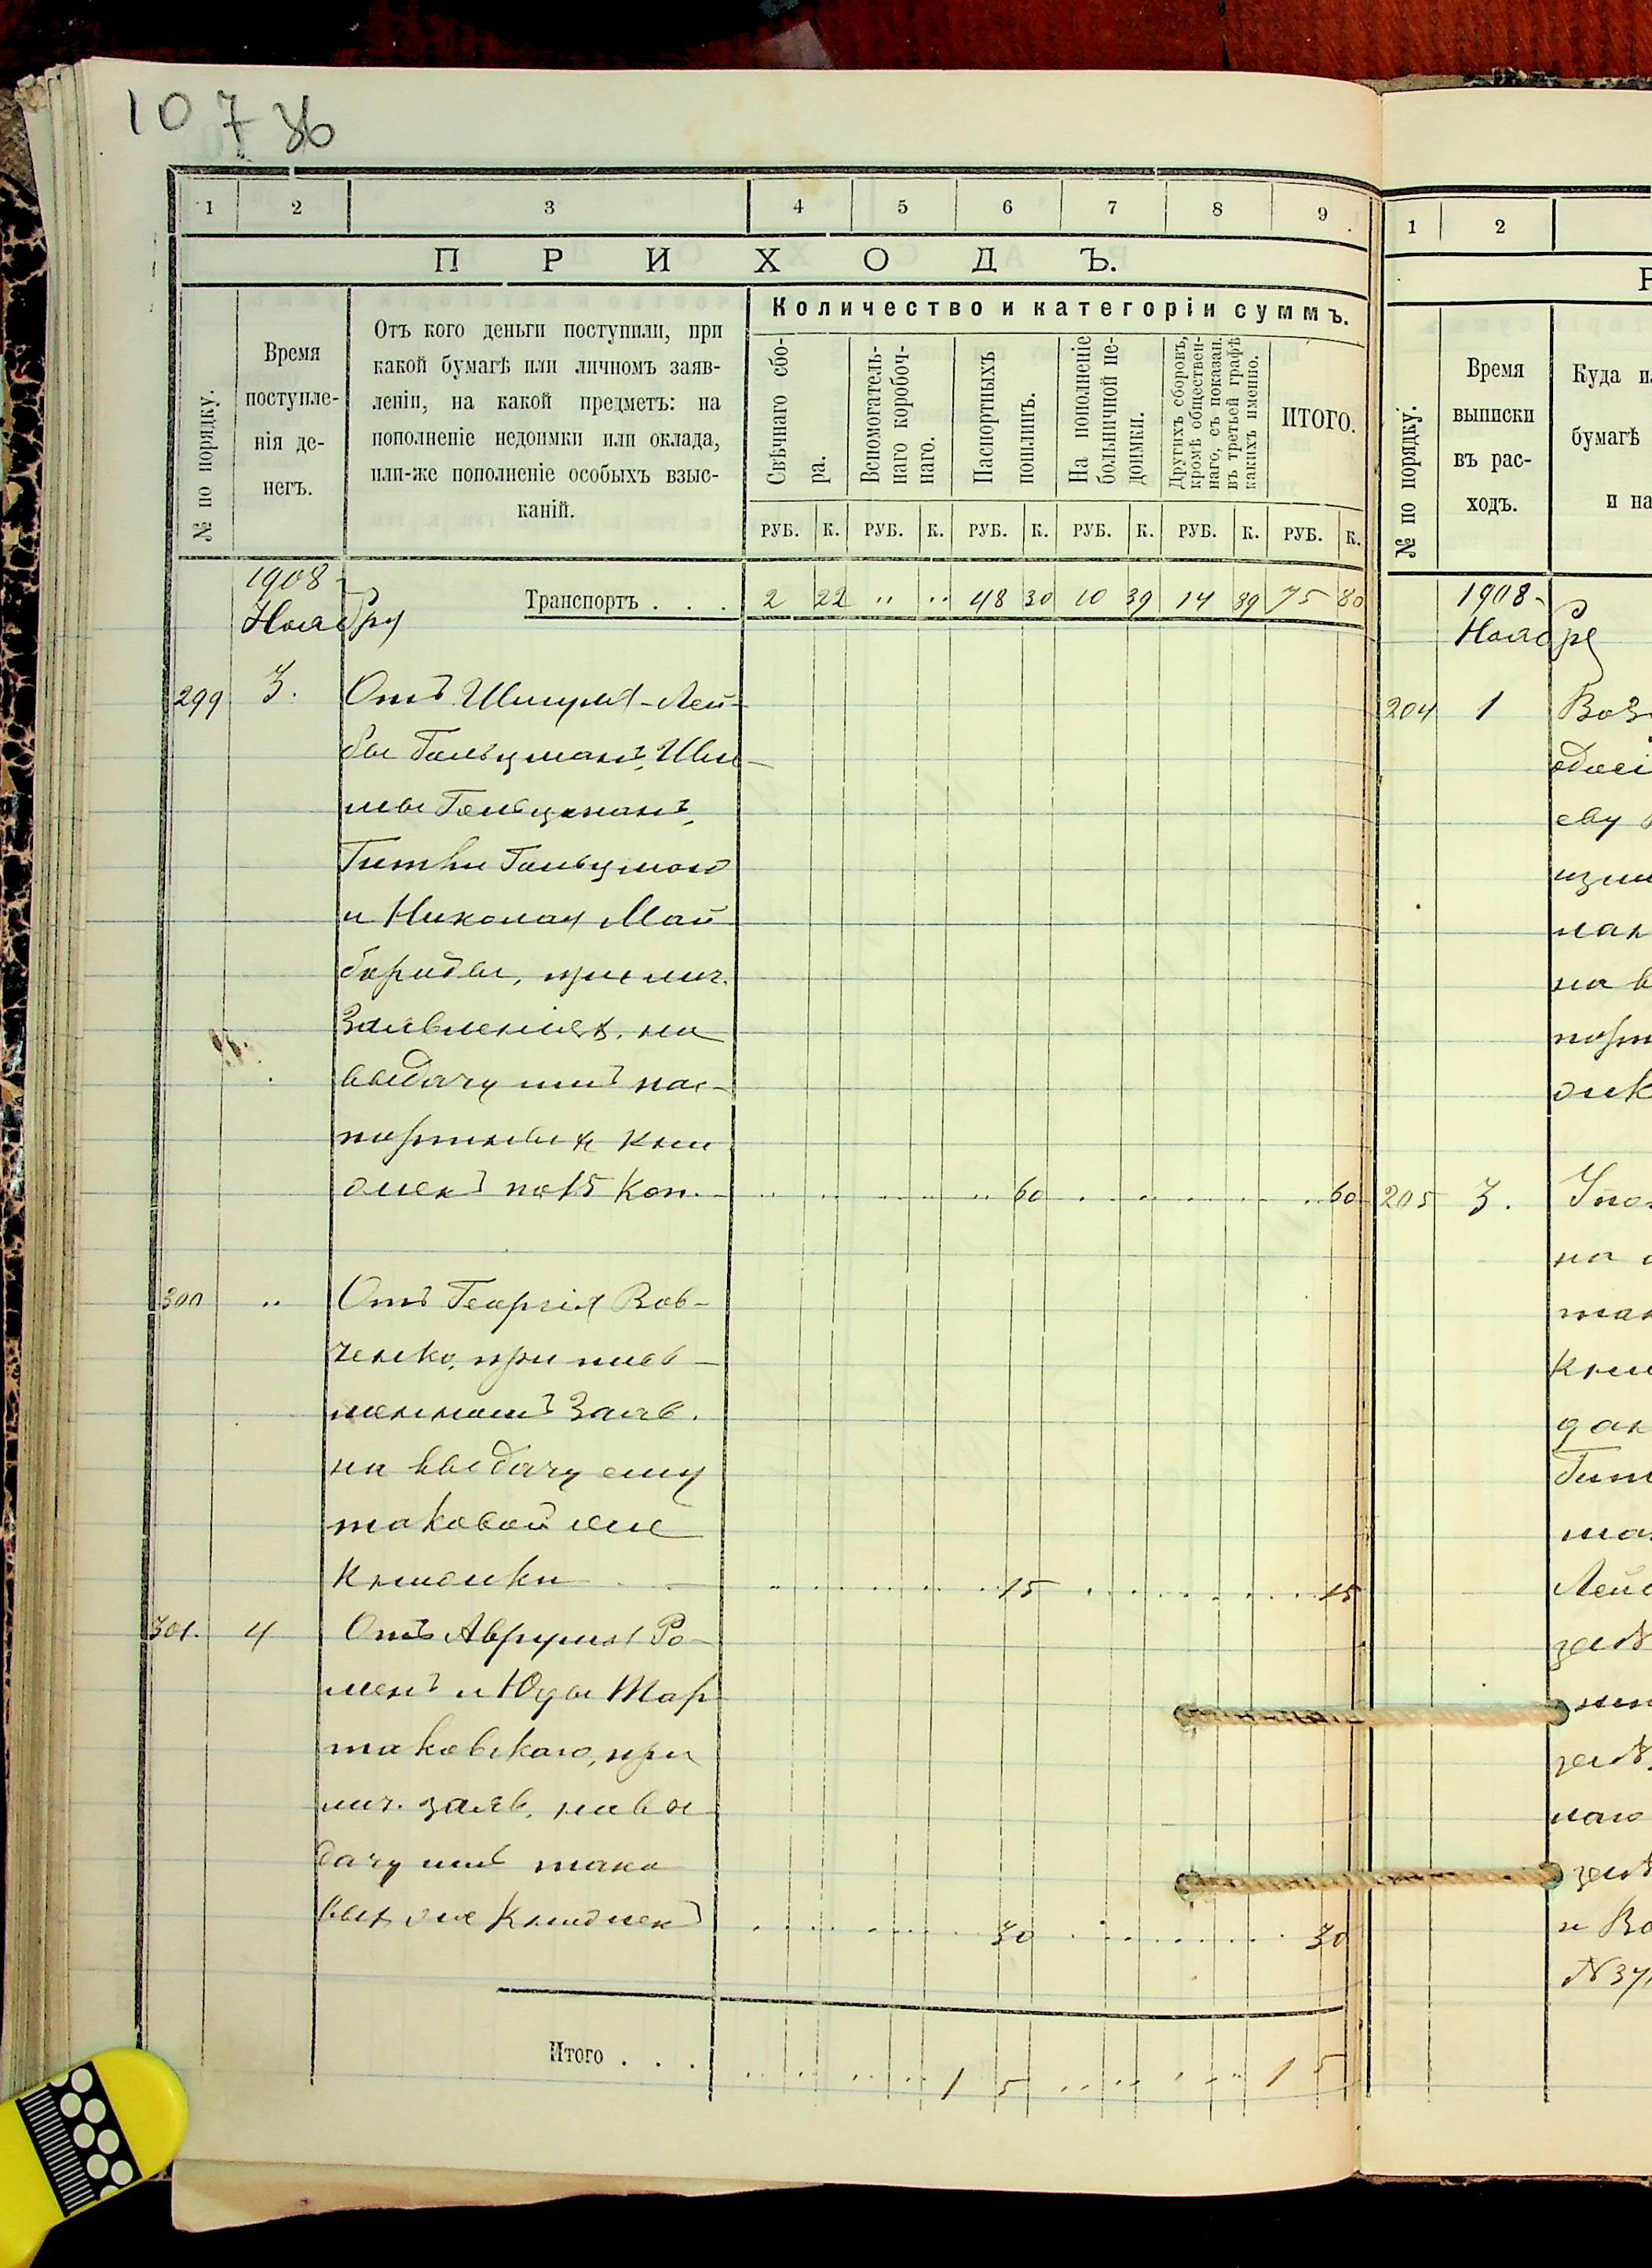 107 36
1 2 3 4 5 6 7 8 9
ПРИХОДЪ.
№ по порядку.
Время
поступле-
нія де-
негъ.
Отъ кого деньги поступили, при
какой бумагѣ или личномъ заяв-
леніи, на какой предметъ: на
пополненіе недоимки или оклада,
или-же пополненіе особыхъ взыс-
каній.
Количество и категоріи суммъ.
Свѣчнаго сбо-
ра.
Вспомогатель-
наго коробоч-
наго.
Паспортныхъ
пошлинъ.
На пополненіе
больничной не-
доимки.
Другихъ сборовъ,
кромѣ обществен-
наго, съ показан.
въ третьей графѣ
какихъ именно.
ИТОГО.
РУБ. К. РУБ. К. РУБ. К. РУБ. К. РУБ. К. РУБ. К.
1908
Ноября
Транспортъ . . . 2 22 " " 48 30 10 39 14 89 75 80
299 3. Отъ Шмуля-Лей-
бы Гольцманъ, Шли-
мы Гольцманъ,
Гитли Гольцманъ
и Николая Май
бороды, при лич.
заявленіях. на
выдачу имъ пас-
портныхъ кни
жекъ по 15 коп. 60 60
300 " Отъ Георгія Вов-
ченко, при пись-
менномъ заяв.
на выдачу ему
таковой же
книжки 15 15
301. 4 Отъ Аврума Ро-
менъ и Юды Тар
таковскаго, при
лич. заяв. на вы
дачу имъ тако
вых же книжекъ 30 30
Итого . . . 1 5 1 5
1 2
№ по порядку.
Время
выписки
въ рас-
ходъ.
Куда и
бумагѣ
и на
1908
Ноября
204 1 Воз
еву
нак
на в
порт
205 3.
на
так
кни
дан
Гит
ман
Лей
наго
и Во
№ 37